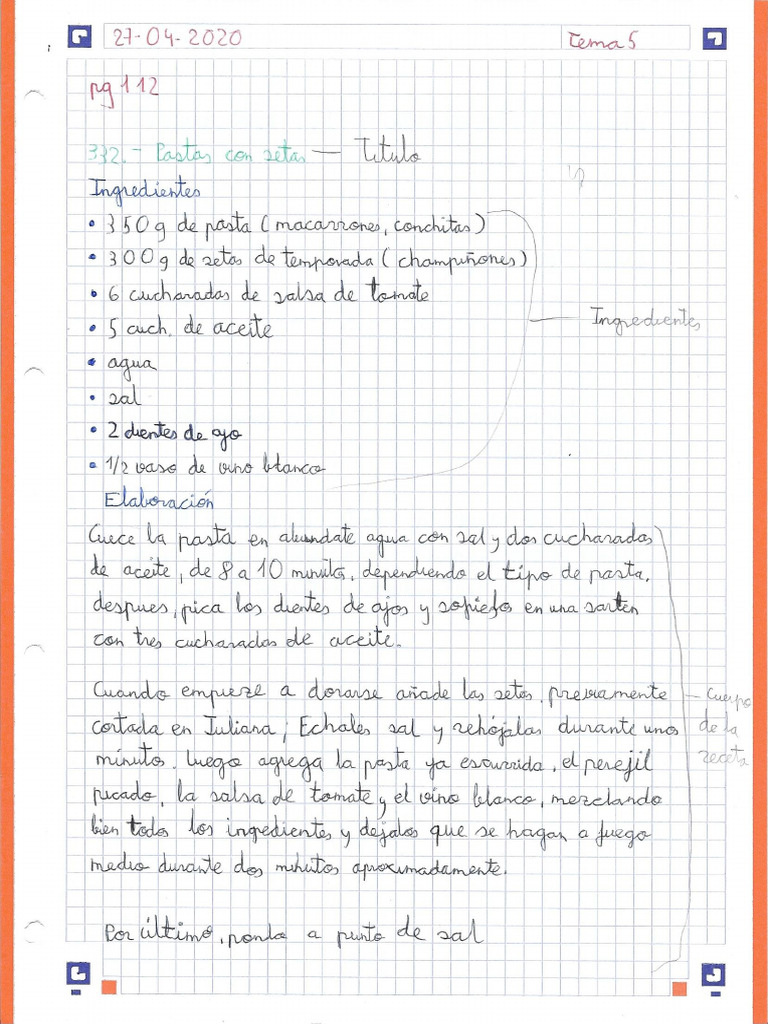 27-04-2020 Tema 5
pg 112
332.- Pastas con setas — Titulo
Ingredientes
• 350g de pasta (macarrones, conchitas)
• 300g de setas de temporada (champiñones)
• 6 cucharadas de salsa de tomate
• 5 cuch. de aceite
Ingredientes
• agua
• sal
• 2 dientes de ajo
• 1/2 vaso de vino blanco
Elaboración
Cuece la pasta en abundate agua con sal y dos cucharadas
de aceite, de 8 a 10 minutos, dependiendo el tipo de pasta.
despues, pica los dientes de ajos y en una sarten
con tres cucharadas de aceite.
Cuando empieze a dorarse añade las setas, previamente
cortada en Juliana; Echales sal y rehójalas durante unos
minutos. Luego agrega la pasta ya escurrida, el perejil
picado, la salsa de tomate y el vino blanco, mezclando
bien todos los ingredientes y dejalos que se hagan a fuego
medio durante dos minutos aproximadamente.
Cuerpo
de la
receta
Por último, ponla a punto de sal